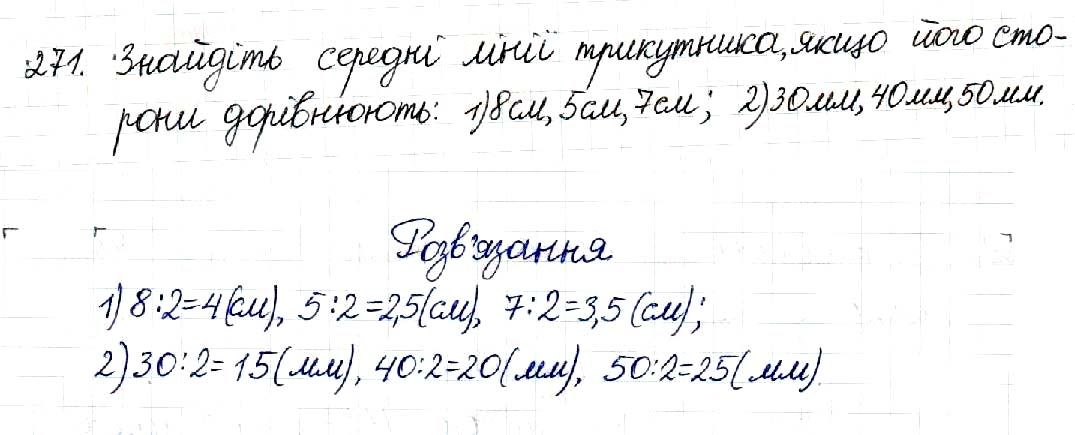 271. Знайдіть середні лінії трикутника, якщо його сто-
рони дорівнюють: 1) 8 см, 5 см, 7 см; 2) 30 мм, 40 мм, 50 мм.
Розв'язання
1) 8:2=4 (см), 5:2=2,5 (см), 7:2=3,5 (см);
2) 30:2=15 (мм), 40:2=20 (мм), 50:2=25 (мм)